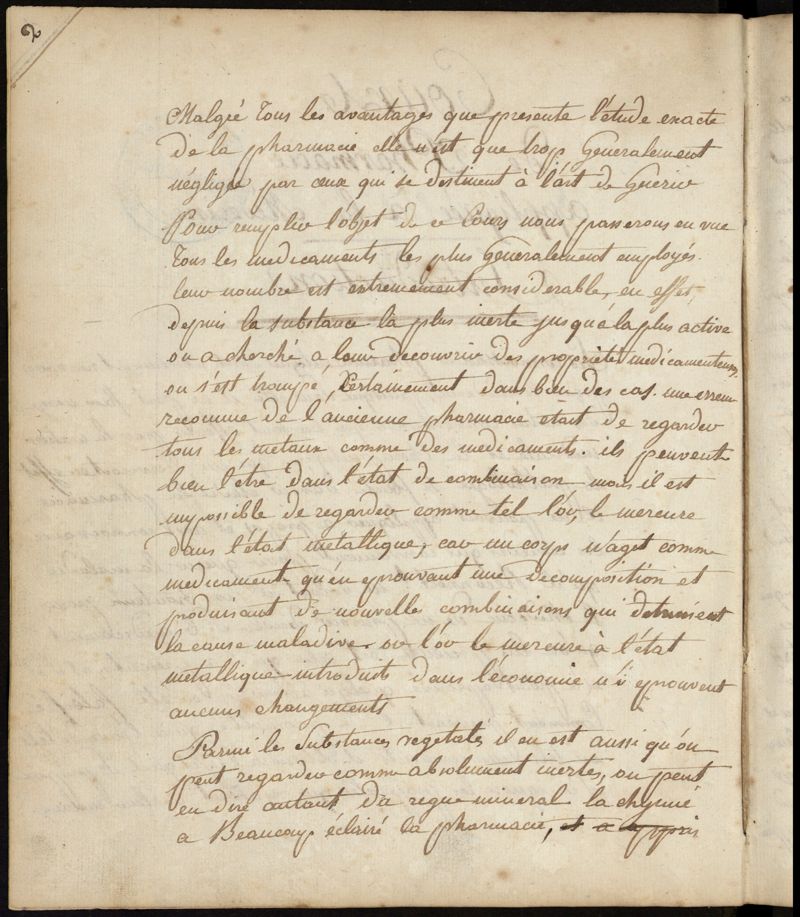 2
Malgré tous les avantages que presente l'étude exacte
de la pharmacie elle n'est que trop Generalement
négligée par ceux qui se destinent à l'art de Guerir
Pour remplir l'objet de ce Cours nous passerons en vue
tous les medicaments les plus Generalement employés.
leur nombre est extremement considerable, en effet,
depuis la substance la plus inerte jusqu'à la plus active
on a cherché a leur decouvrir des proprietés medicamenteuses,
on s'est trompé, Certainement dans bien des cas. une erreur
reconnue de l'ancienne pharmacie était de regarder
tous les metaux comme des medicaments. ils peuvent
bien l'être dans l'état de combinaison mais il est
impossible de regarder comme tel l'or, le mercure
dans l'état metallique, car un corps n'agit comme
medicament qu'en eprouvant une decomposition et
produisant de nouvelles combinaisons qui detruisent
la cause maladive. or l'or le mercure à l'état
metallique introduits dans l'économie n'i eprouvent
aucuns changements
Parmi les Substances vegetales, il en est aussi qu'on
peut regarder comme absolument inertes, on peut
en dire autant du regne mineral la chymie
a Beaucoup éclairé la pharmacie, et a appris